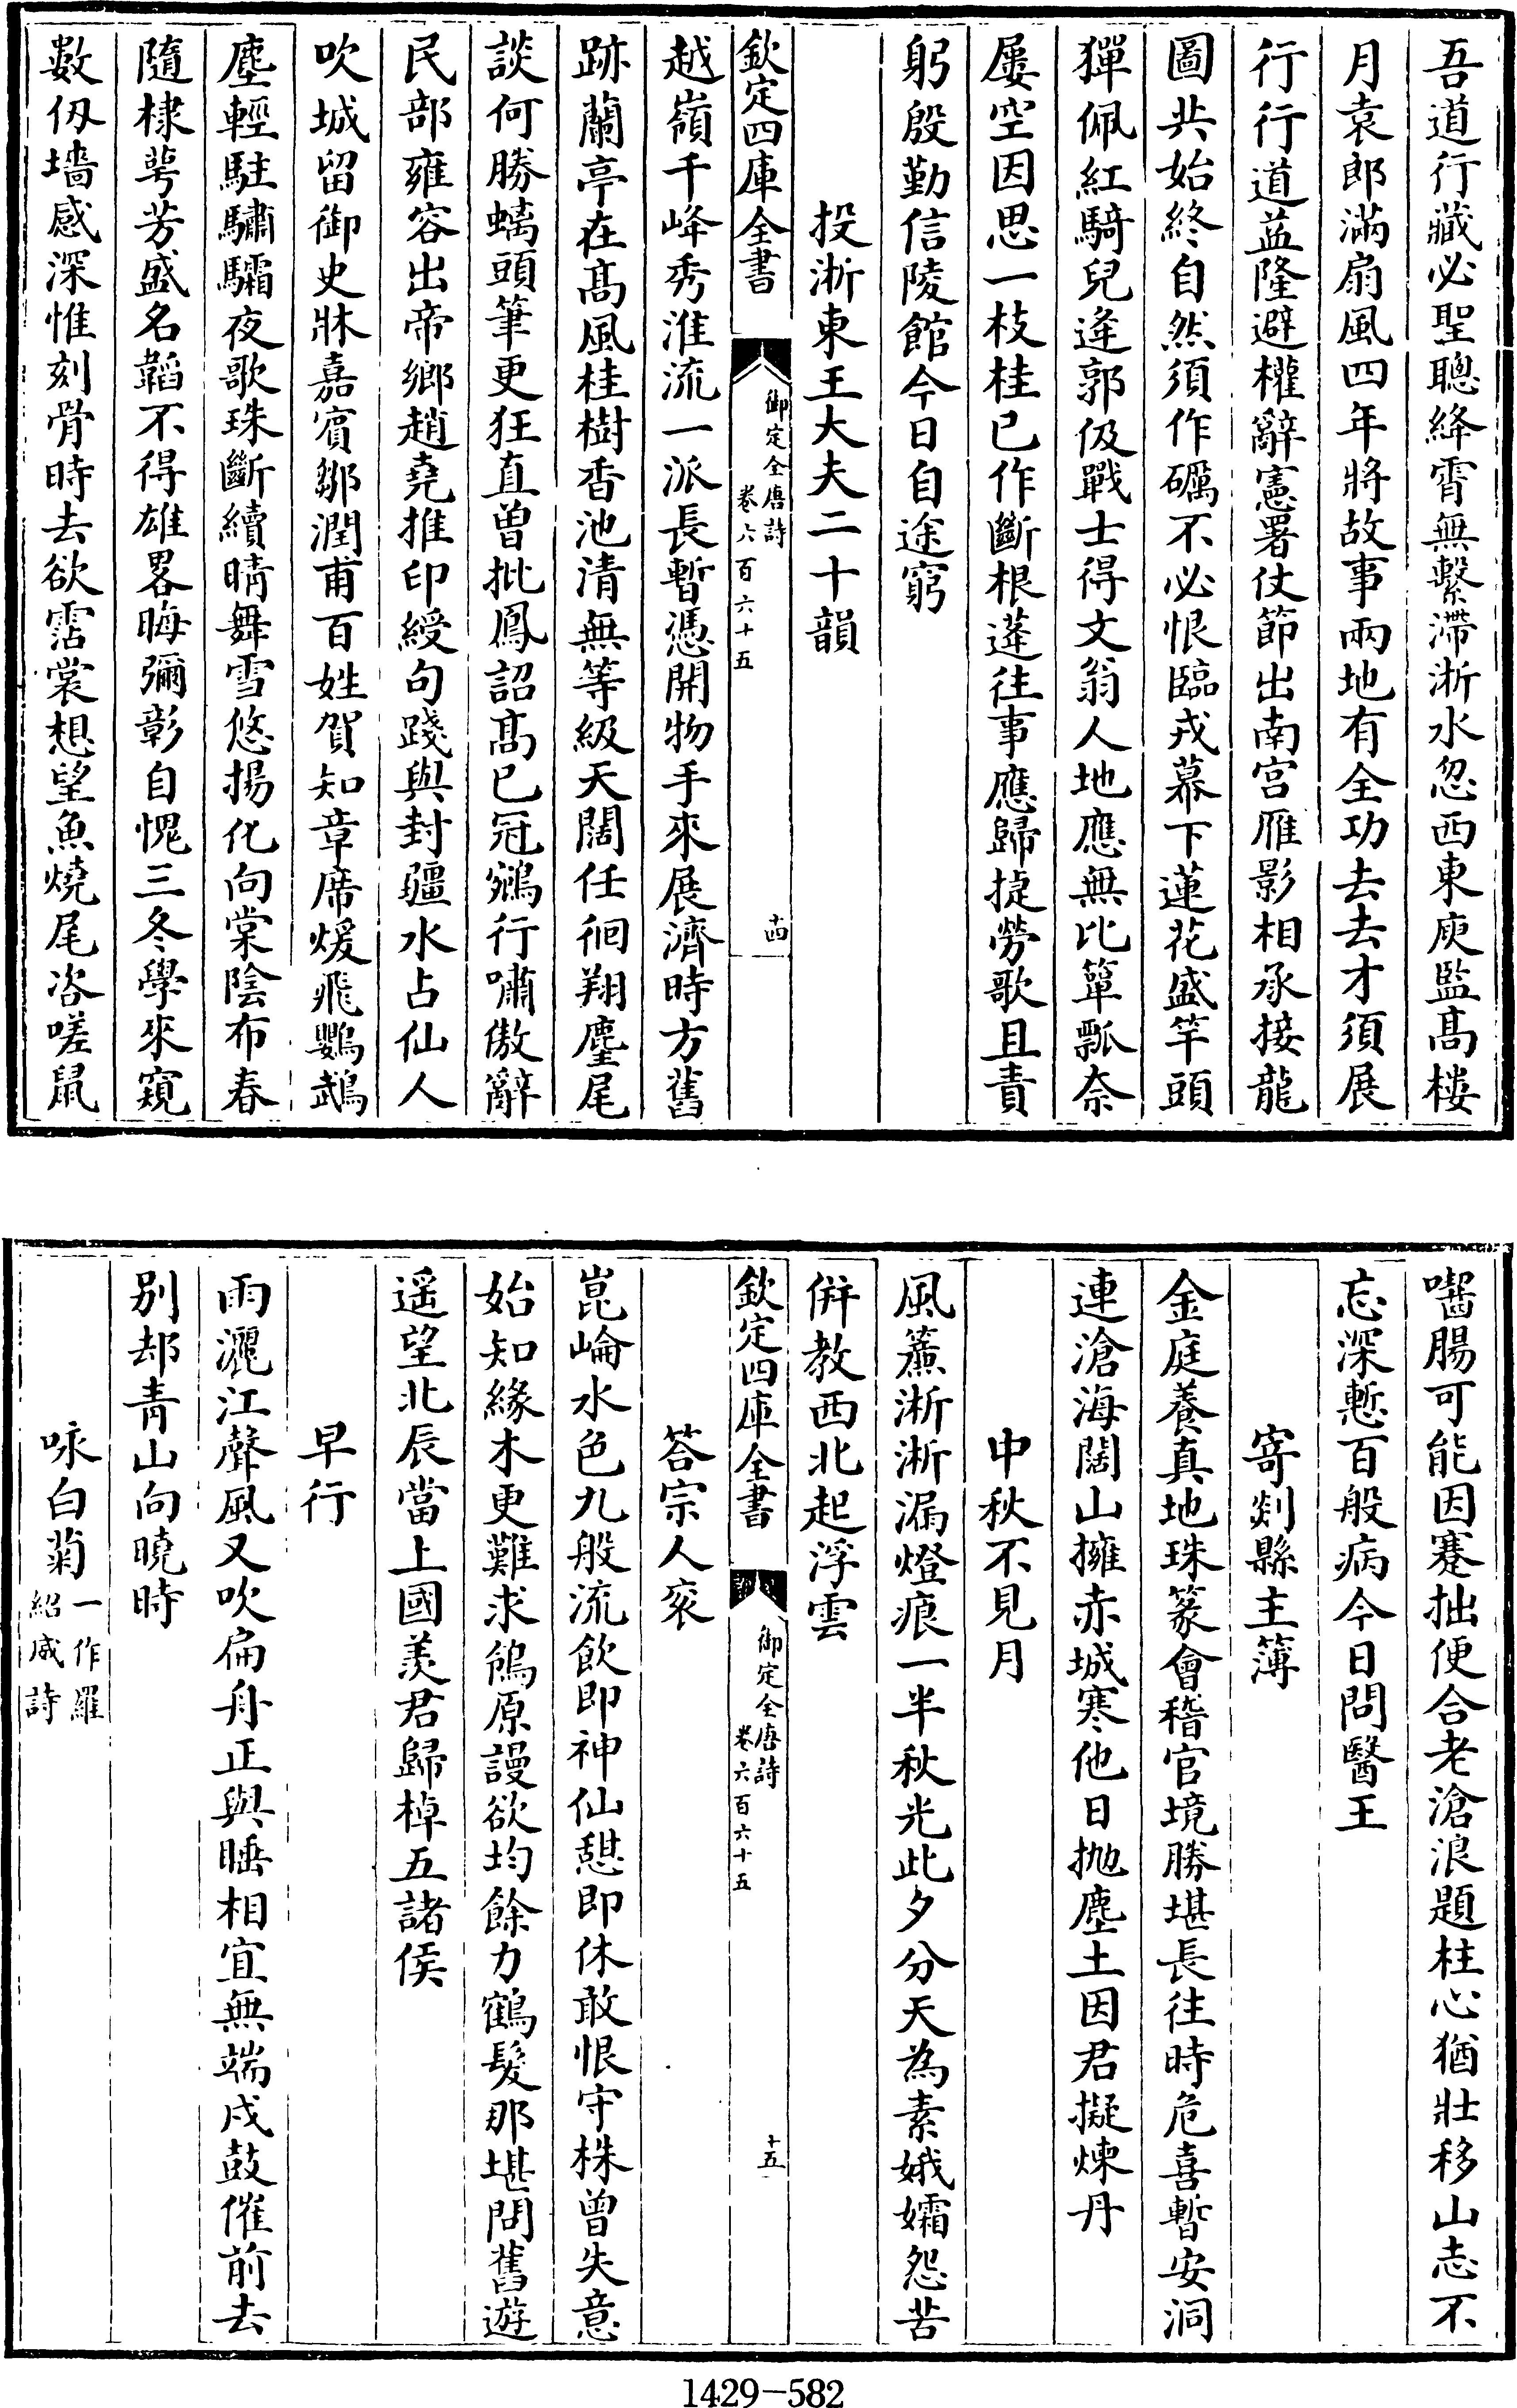 吾道行藏必聖聰絳霄無繫滯淅水忽西東庾監髙樓
月袁郎滿扇風四年將故事兩地有全功去去才須展
行行道益隆避權辭憲署仗節出南宫雁影相承接龍
圖共始終自然須作礪不必恨臨戎幕下蓮花盛竿頭
獋佩紅騎兒逢郭伋戰士得文翁人地應無比簞瓢奈
屢空因思一枝桂已作斷根蓬往事應歸捷勞歌且責
躬殷勤信陵館今日自途窮
投淅東王大夫二十韻
欽定四庫全書
御定全唐詩
卷六百六十五
十四
越嶺千峰秀淮流一派長暫憑開物手來展濟時方舊
跡蘭亭在髙風桂樹香池清無等級天闊任徊翔麈尾
談何勝螭頭筆更狂直曽批鳳詔髙已冠鵷行嘯傲辭
民部雍容出帝鄉趙堯推印綬句踐與封疆水占仙人
吹城留御史牀嘉賓鄒潤甫百姓賀知章席煖飛鸚鵡
塵輕駐驌驦夜歌珠斷續晴舞雪悠揚化向棠陰布春
隨棣萼芳盛名韜不得雄畧晦彌彰自愧三冬學來窺
數仭墻感深惟刻骨時去欲霑裳想望魚燒尾咨嗟鼠
囓腸可能因蹇拙便合老滄浪題柱心猶壯移山志不
忘深慙百般病今日問醫王
寄剡縣主簿
金庭養真地珠篆會稽官境勝堪長往時危喜暫安洞
連滄海闊山擁赤城寒他日抛塵土因君擬煉丹
中秋不見月
風簾淅淅漏燈痕一半秋光此夕分天為素娥孀怨苦
併教西北起浮雲
欽定四庫全書
御定全唐詩
卷六百六十五
十五
答宗人衮
崑崘水色九般流飲即神仙憇即休敢恨守株曽失意
始知緣木更難求鴒原謾欲均餘力鶴髮那堪問舊遊
遥望北辰當上國羡君歸棹五諸侯
早行
雨灑江聲風又吹扁舟正與睡相宜無端戍鼓催前去
别却青山向曉時
咏白菊一作羅紹威詩
1429-582